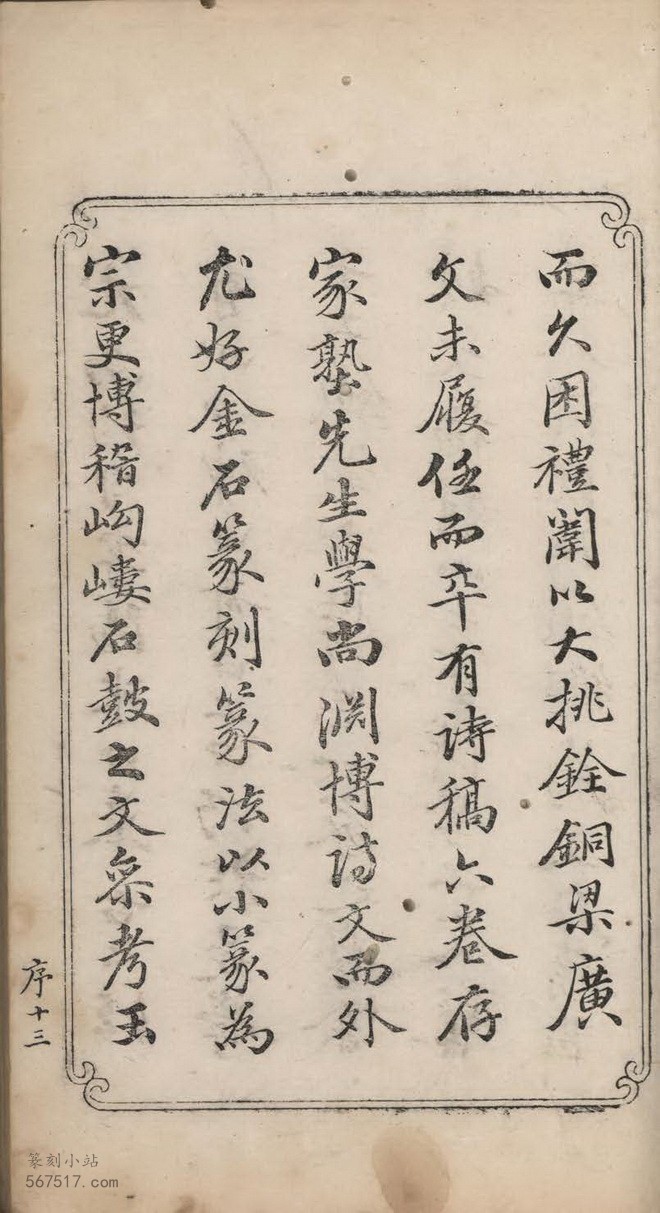 而久困禮闈以大挑銓銅梁廣
文未履任而卒有詩稿六卷存
家塾先生學尚淵博詩文而外
尤好金石篆刻篆法以小篆為
宗更博稽岣嶁石鼓之文參考玉
序十三
篆刻小站
567517.com